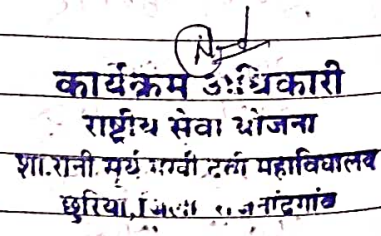 कार्यक्रम अधिकारी
राष्ट्रीय सेवा योजना
शा.रानी सूर्य मुखी देवी महाविद्यालय
छुरिया, जिला राजनांदगांव